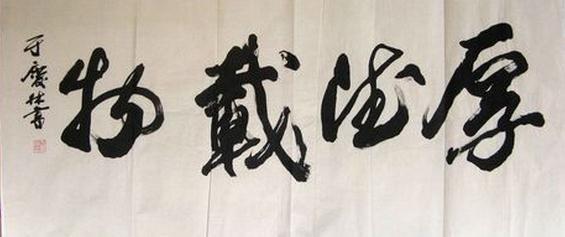 厚德載物
于慶林書